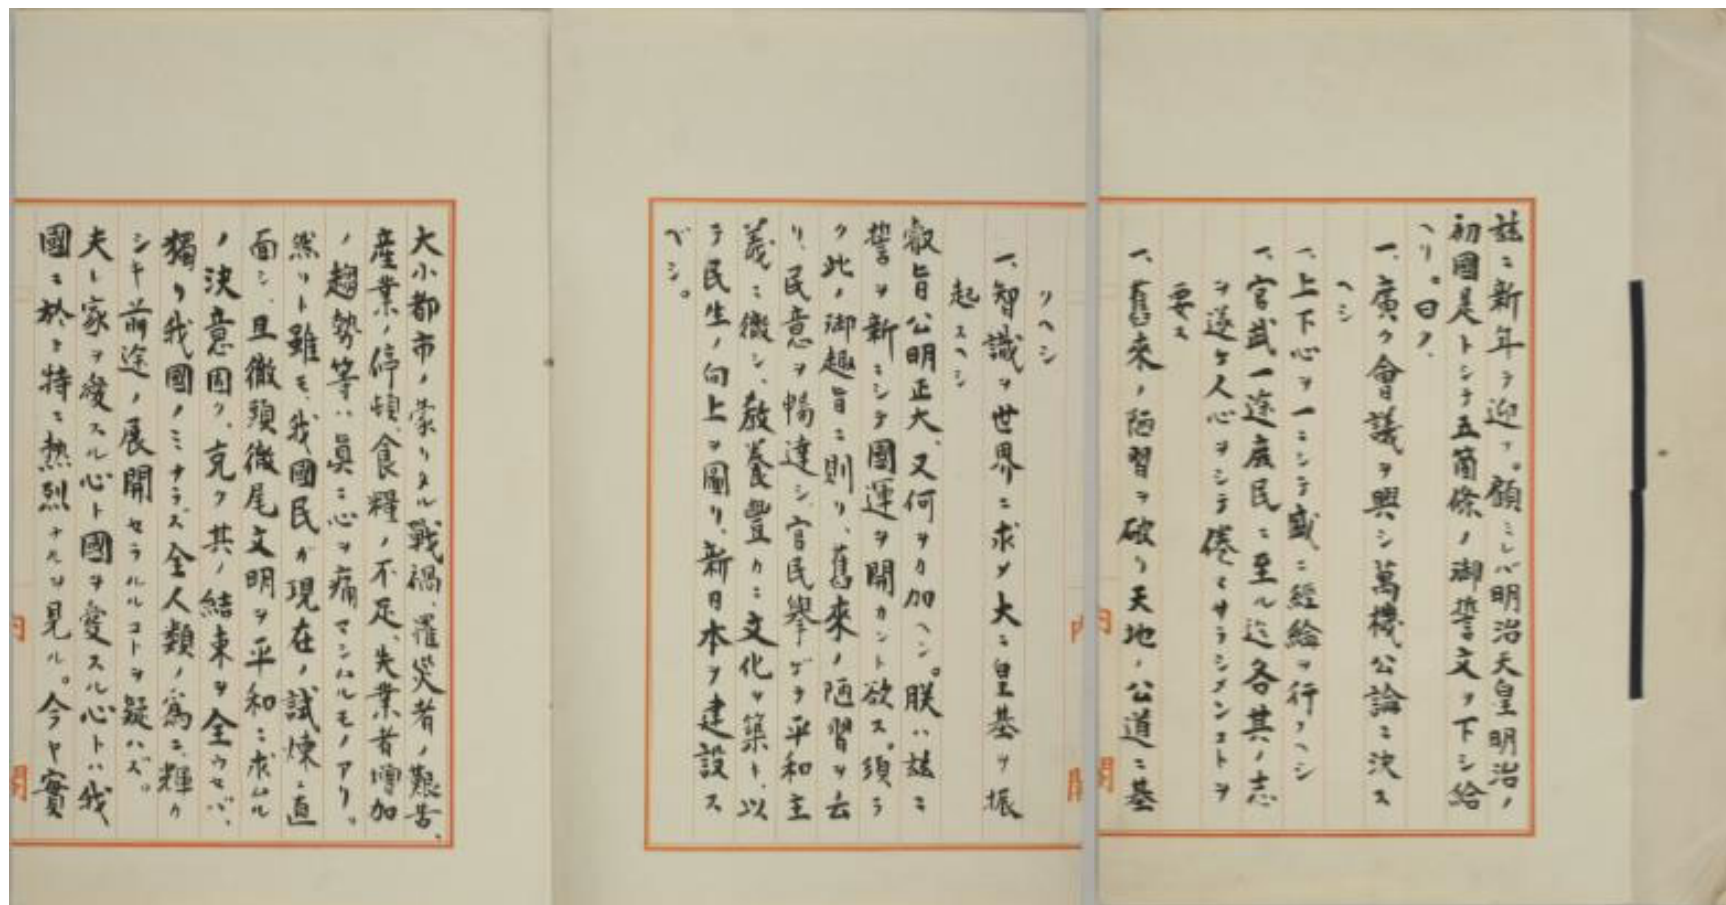 茲ニ新年ヲ迎フ。顧ミレバ明治天皇明治ノ
初國是トシテ五箇條ノ御誓文ヲ下シ給
ヘリ。曰ク、
一、廣ク會議ヲ興シ萬機公論ニ決ス
ヘシ
一、上下心ヲ一ニシテ盛ニ經綸ヲ行フヘシ
一、官武一途庶民ニ至ル迄各其ノ志
ヲ遂ケ人心ヲシテ倦マサラシメンコトヲ
要ス
一、舊來ノ陋習ヲ破リ天地ノ公道ニ基
クヘシ
一、智識ヲ世界ニ求メ大ニ皇基ヲ振
起スヘシ
叡旨公明正大、又何ヲカ加ヘン。朕ハ茲ニ
誓ヲ新ニシテ國運ヲ開カント欲ス。須ラ
ク此ノ御趣旨ニ則リ、舊來ノ陋習ヲ去
リ、民意ヲ暢達シ、官民擧ゲテ平和主
義ニ徹シ、敎養豐カニ文化ヲ築キ、以
テ民生ノ向上ヲ圖リ、新日本ヲ建設ス
ベシ。
大小都市ノ蒙リタル戰禍、罹災者ノ艱苦、
産業ノ停頓、食糧ノ不足、失業者增加
ノ趨勢等ハ眞ニ心ヲ痛マシムルモノアリ。
然リト雖モ、我國民ガ現在ノ試煉ニ直
面シ、且徹頭徹尾文明ヲ平和ニ求ムル
ノ決意固ク、克ク其ノ結束ヲ全ウセバ、
獨リ我國ノミナラズ全人類ノ爲ニ、輝カ
シキ前途ノ展開セラルルコトヲ疑ハズ。
夫レ家ヲ愛スル心ト國ヲ愛スル心トハ我
國ニ於テ特ニ熱烈ナルヲ見ル。今ヤ實
内
閣
内
閣
内
閣